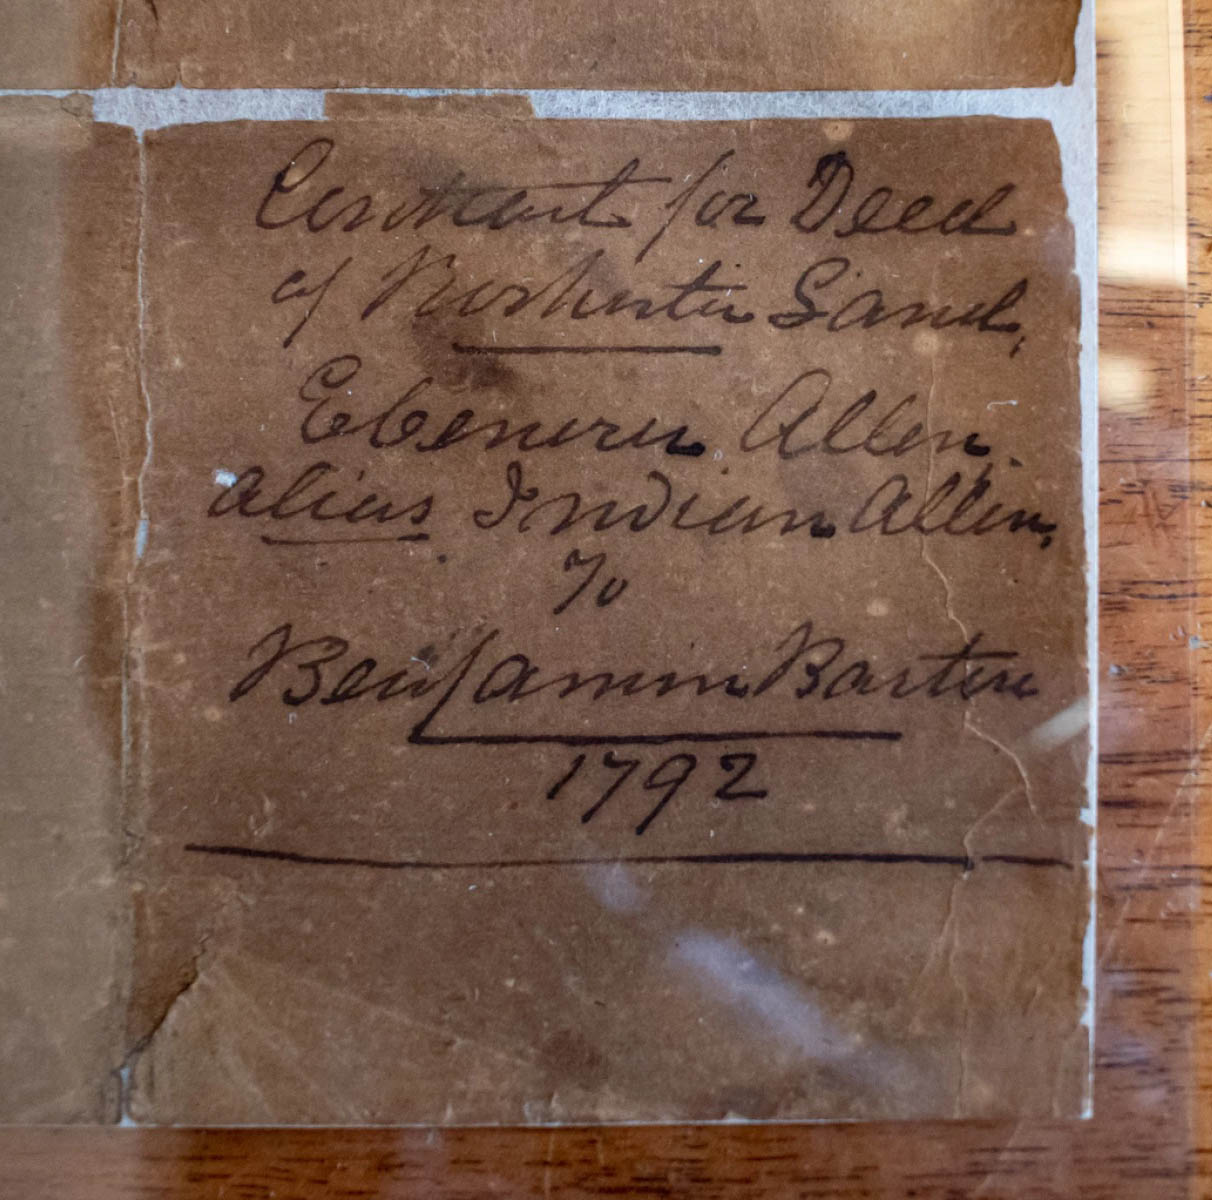 Contract for Deed
of Rochester Land,
Ebenezer Allen.
alias Indian Allen,
To
Benjamin Barton
1792